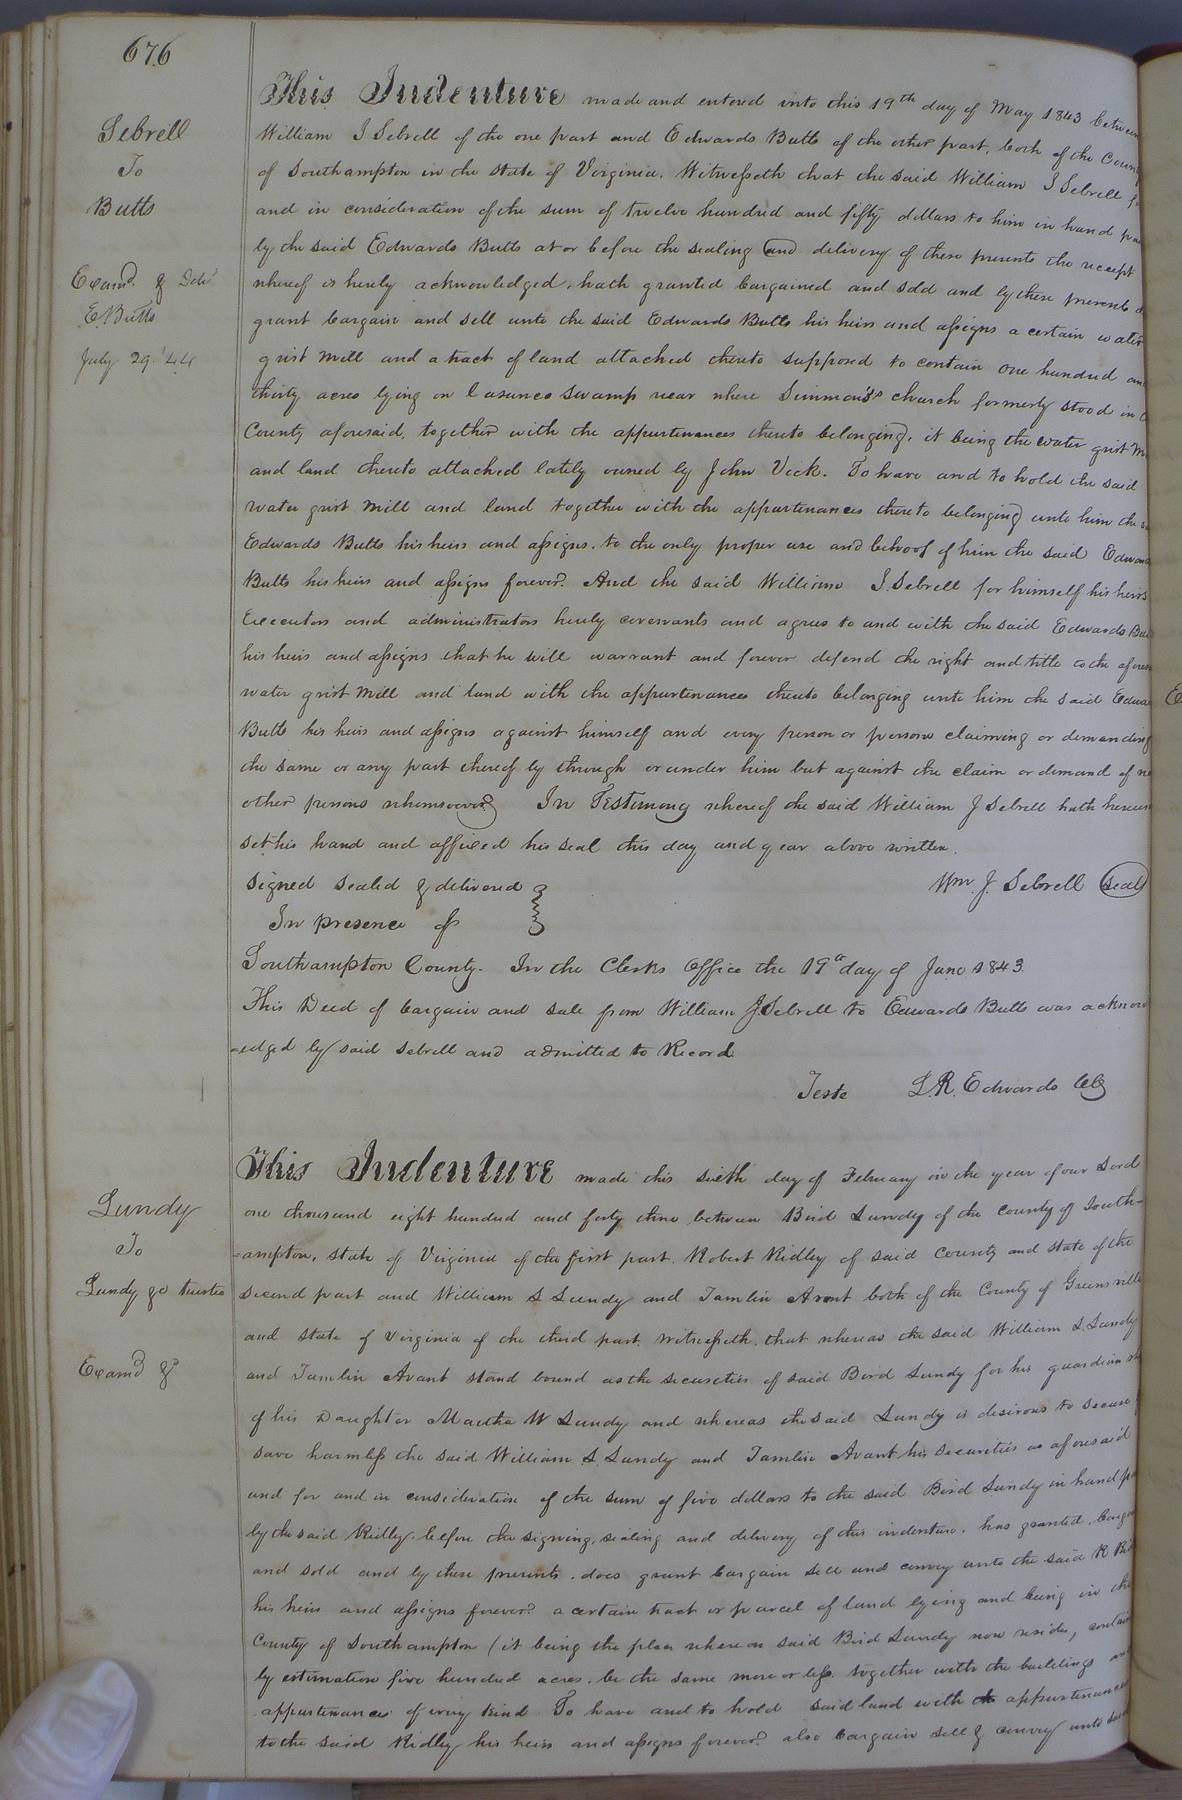 676
Sebrell
To
Butts
Examd. & Deld
E. Butts
July 29 '44
This Indenture made and entered into this 19th day of May 1843 between
William J Sebrell of the one part and Edwards Butts of the other part, both of the Coun
of Southampton in the state of Virginia. Witnesseth that the said William J Sebrell fo
and in consideration of the sum of twelve hundred and fifty dollars to him in hand pa
by the said Edwards Butts at or before the sealing and delivery of these presents the receipt
whereof is hereby acknowledged, hath granted bargained and sold and by these presents d
grant bargain and sell unto the said Edwards Butts his heirs and assigns a certain water
grist mill and a tract of land attached thereto supposed to contain one hundred an
thirty acres lying on swamp near where Simmons's church formerly stood in
County aforesaid, together with the appurtenances thereto belonging, it being the water grist M
and land thereto attached lately owned by John Vick. To have and to hold the said
water grist mill and land together with the appurtenances thereto belonging unto him the s
Edwards Butts his heirs and assigns, to the only proper use and behoof of him the said Edwards
Butts his heirs and assigns forever. And the said William J. Sebrell for himself his heirs
Executors and administrators hereby covenants and agrees to and with the said Edwards But
his heirs and assigns that he will warrant and forever defend the right and title to the afores
water grist mill and land with the appurtenances thereto belonging unto him the said Edwa
Butts his heirs and assigns against himself and every person or persons claiming or demanding
the same or any part thereof by through or under him but against the claim or demand of no
other persons whomsoever. In Testimony whereof the said William J Sebrell hath hereun
set his hand and affixed his seal this day and year above written.
Signed sealed & delivered
In presence of
Wm. J. Sebrell (seal)
Southampton County. In the Clerks Office the 19th day of June 1843.
This Deed of bargain and sale from William J. Sebrell to Edwards Butts was acknow
=edged by said Sebrell and admitted to Record
Teste L.R. Edwards Clk
Lundy
To
Lundy &c trustee
Examd &
This Indenture made this sixth day of February in the year of our Lord
one thousand eight hundred and forty three between Bird Lundy of the county of South=
=ampton, state of Virginia of the first part. Robert Ridley of said county and state of the
second part and William L Lundy and Tamlin Avent both of the County of Greensville
and state of Virginia of the third part. Witnesseth, that whereas the said William L. Lundy
and Tamlin Avant stand bound as the securities of said Bird Lundy for his guardian sh
of his Daughter Martha W Lundy and whereas the said Lundy is desirous to secure
save harmless the said William L. Lundy and Tamlin Avant his securities as aforesaid
and for and in consideration of the sum of five dollars to the said Bird Lundy in hand pa
by the said Ridley, before the signing, sealing and delivery of this indenture, has granted, barga
and sold and by these presents, does grant bargain sell and convey unto the said R Rid
his heirs and assigns forever a certain tract or parcel of land lying and being in the
County of Southampton (it being the place whereon said Bird Lundy now resides, contain
by estimation five hundred acres, be the same more or less, together with the buildings and
appurtenances of every kind To have and to hold said land with the appurtenances
to the said Ridley his heirs and assigns forever. also bargain sell & convey unto said